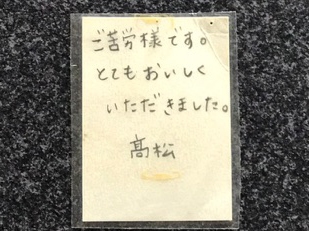 ご苦労様です。
とてもおいしく
いただきました。
髙松